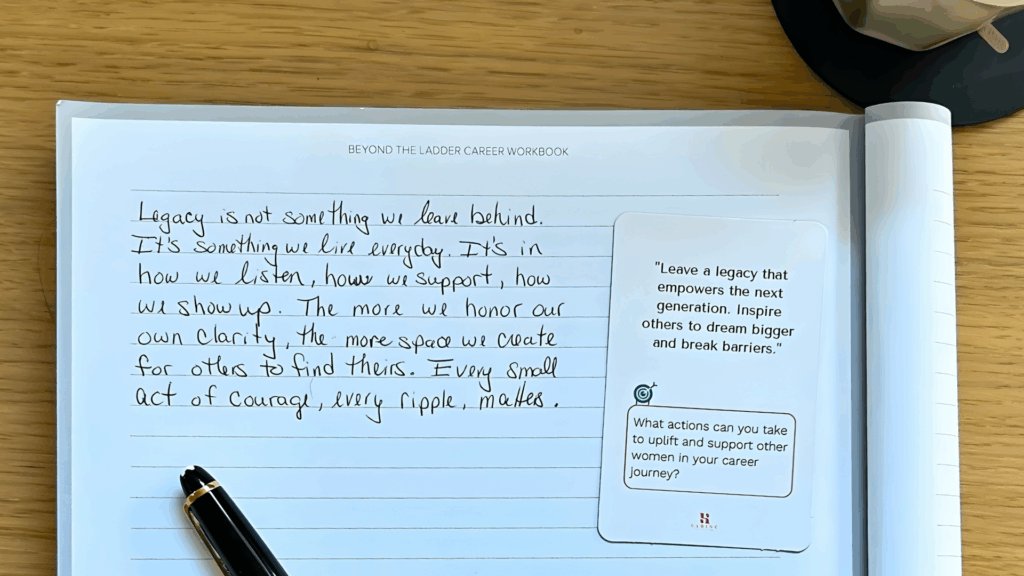 BEYOND THE LADDER CAREER WORKBOOK
Legacy is not something we leave behind.
It's something we live everyday. It's in
how we listen, how we support, how
we show up. The more we honor our
own clarity, the more space we create
for others to find theirs. Every small
act of courage, every ripple, matters.
"Leave a legacy that
empowers the next
generation. Inspire
others to dream bigger
and break barriers."
What actions can you take
to uplift and support other
women in your career
journey?